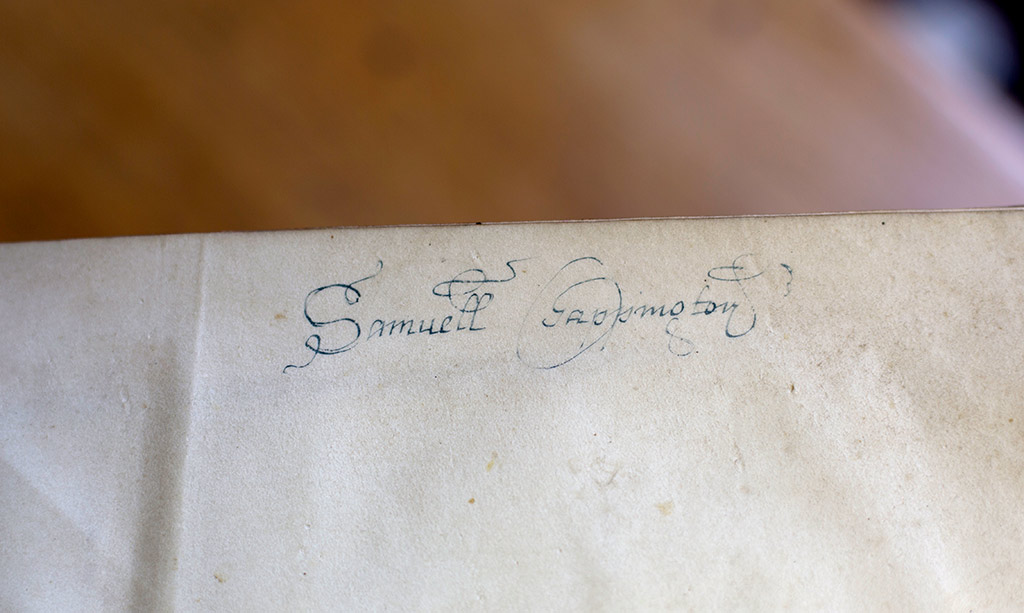 Samuell Sappington